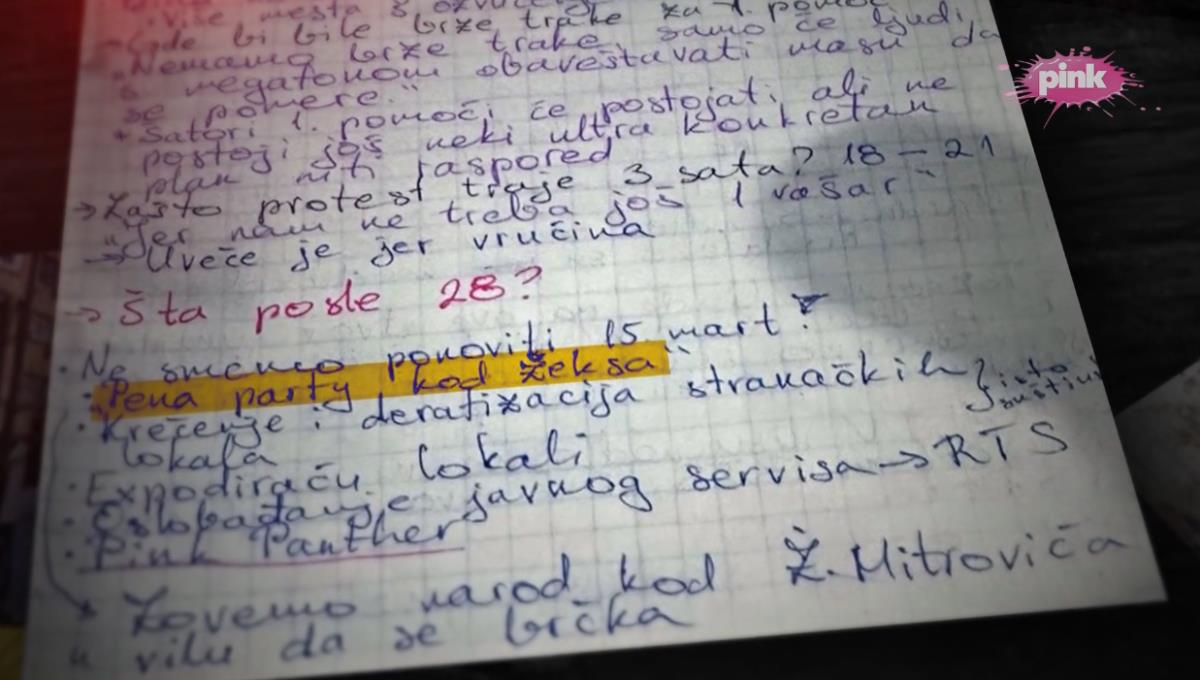 više mesta s ozvuč
Gde bi bile brze trake za 1. pomoć
"Nemamo brze trake samo će ljudi
s megafonom obaveštavati masu da
se pomere."
* Šatori 1. pomoći će postojati, ali ne
postoji još neki ultra konkretan
plan niti raspored
→ Zašto protest traje 3 sata? 18-21
"Jer nam ne treba još 1 vašar"
→ Uveče je jer vrućina
→ Šta posle 28?
• Ne smemo ponoviti 15. mart!
• "Pena party kod Žeksa"
• Krečenje i deratizacija stranačkih } isto
lokala suštini
• Expodiraću lokali
• Oslobađanje javnog servisa → RTS
• Pink Panther
Zovemo narod kod Ž. Mitrovića
u vilu da se brčka
pink